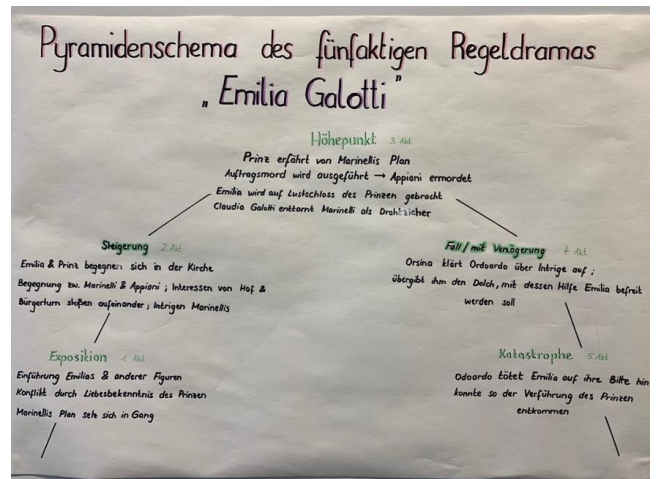 Pyramidenschema des fünfaktigen Regeldramas
„Emilia Galotti"
Höhepunkt 3. Akt
Prinz erfährt von Marinellis Plan
Auftragsmord wird ausgeführt → Appiani ermordet
Emilia wird auf Lustschloss des Prinzen gebracht
Claudia Galotti enttarnt Marinelli als Drahtzieher
Steigerung 2. Akt
Emilia & Prinz begegnen sich in der Kirche
Begegnung zw. Marinelli & Appiani ; Interessen von Hof &
Bürgertum stoßen aufeinander ; Intrigen Marinellis
Fall / mit Verzögerung 4. Akt
Orsina klärt Ordoardo über Intrige auf ;
übergibt ihm den Dolch, mit dessen Hilfe Emilia befreit
werden soll
Exposition 1. Akt
Einführung Emilias & anderer Figuren
Konflikt durch Liebesbekenntnis des Prinzen
Marinellis Plan setz sich in Gang
Katastrophe 5. Akt
Odoardo tötet Emilia auf ihre Bitte hin
konnte so der Verführung des Prinzen
entkommen